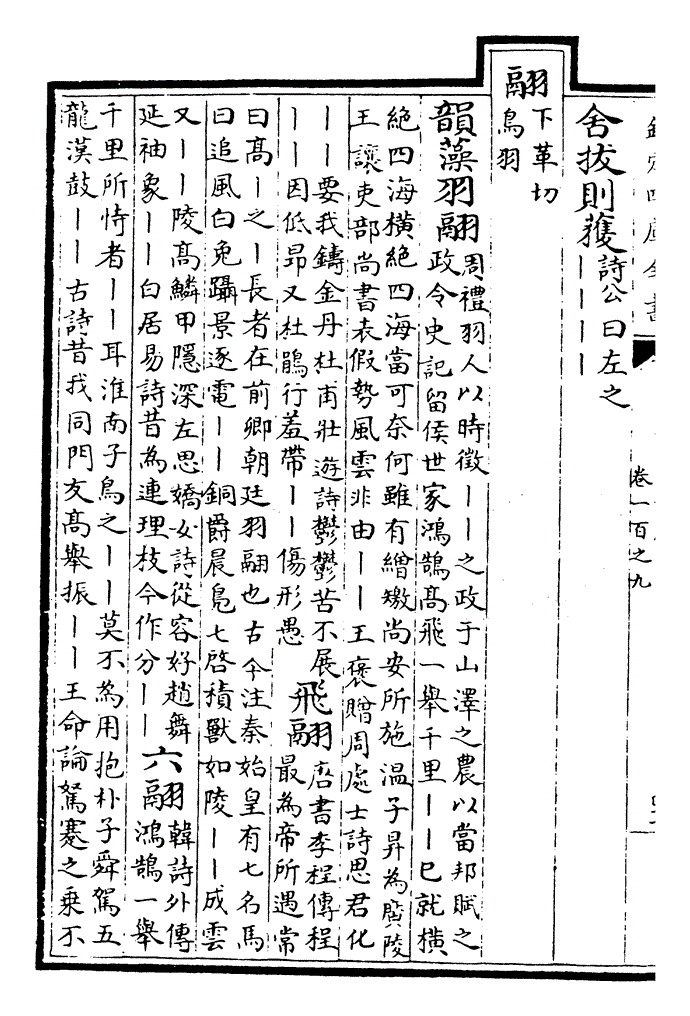 欽定四庫全書
卷一百之九
舍拔則獲詩公曰左之
丨丨丨丨
翮下革切
鳥羽
韻藻羽翮周禮羽人以時徵丨丨之政于山澤之農以當邦賦之
政令史記留侯世家鴻鵠髙飛一舉千里丨丨已就橫
絶四海橫絶四海當可奈何雖有繒繳尚安所施温子昇為廣陵
王讓吏部尚書表假勢風雲非由丨丨王襃贈周處士詩思君化
丨丨要我鑄金丹杜甫壯遊詩鬱鬱苦不展
丨丨困低昻又杜鵑行羞帶丨丨傷形愚
飛翮唐書李程傳程
最為帝所遇常
曰髙丨之丨長者在前卿朝廷羽翮也古今注秦始皇有七名馬
曰追風白兔躡景逐電丨丨銅爵晨鳧七啓積獸如陵丨丨成雲
又丨丨陵髙鱗甲隱深左思嬌女詩從容好趙舞
延袖象丨丨白居易詩昔為連理枝今作分丨丨
六翮韓詩外傳
鴻鵠一舉
千里所恃者丨丨耳淮南子鳥之丨丨莫不為用抱朴子舜駕五
龍漢鼓丨丨古詩昔我同門友髙舉振丨丨王命論駑蹇之乗不